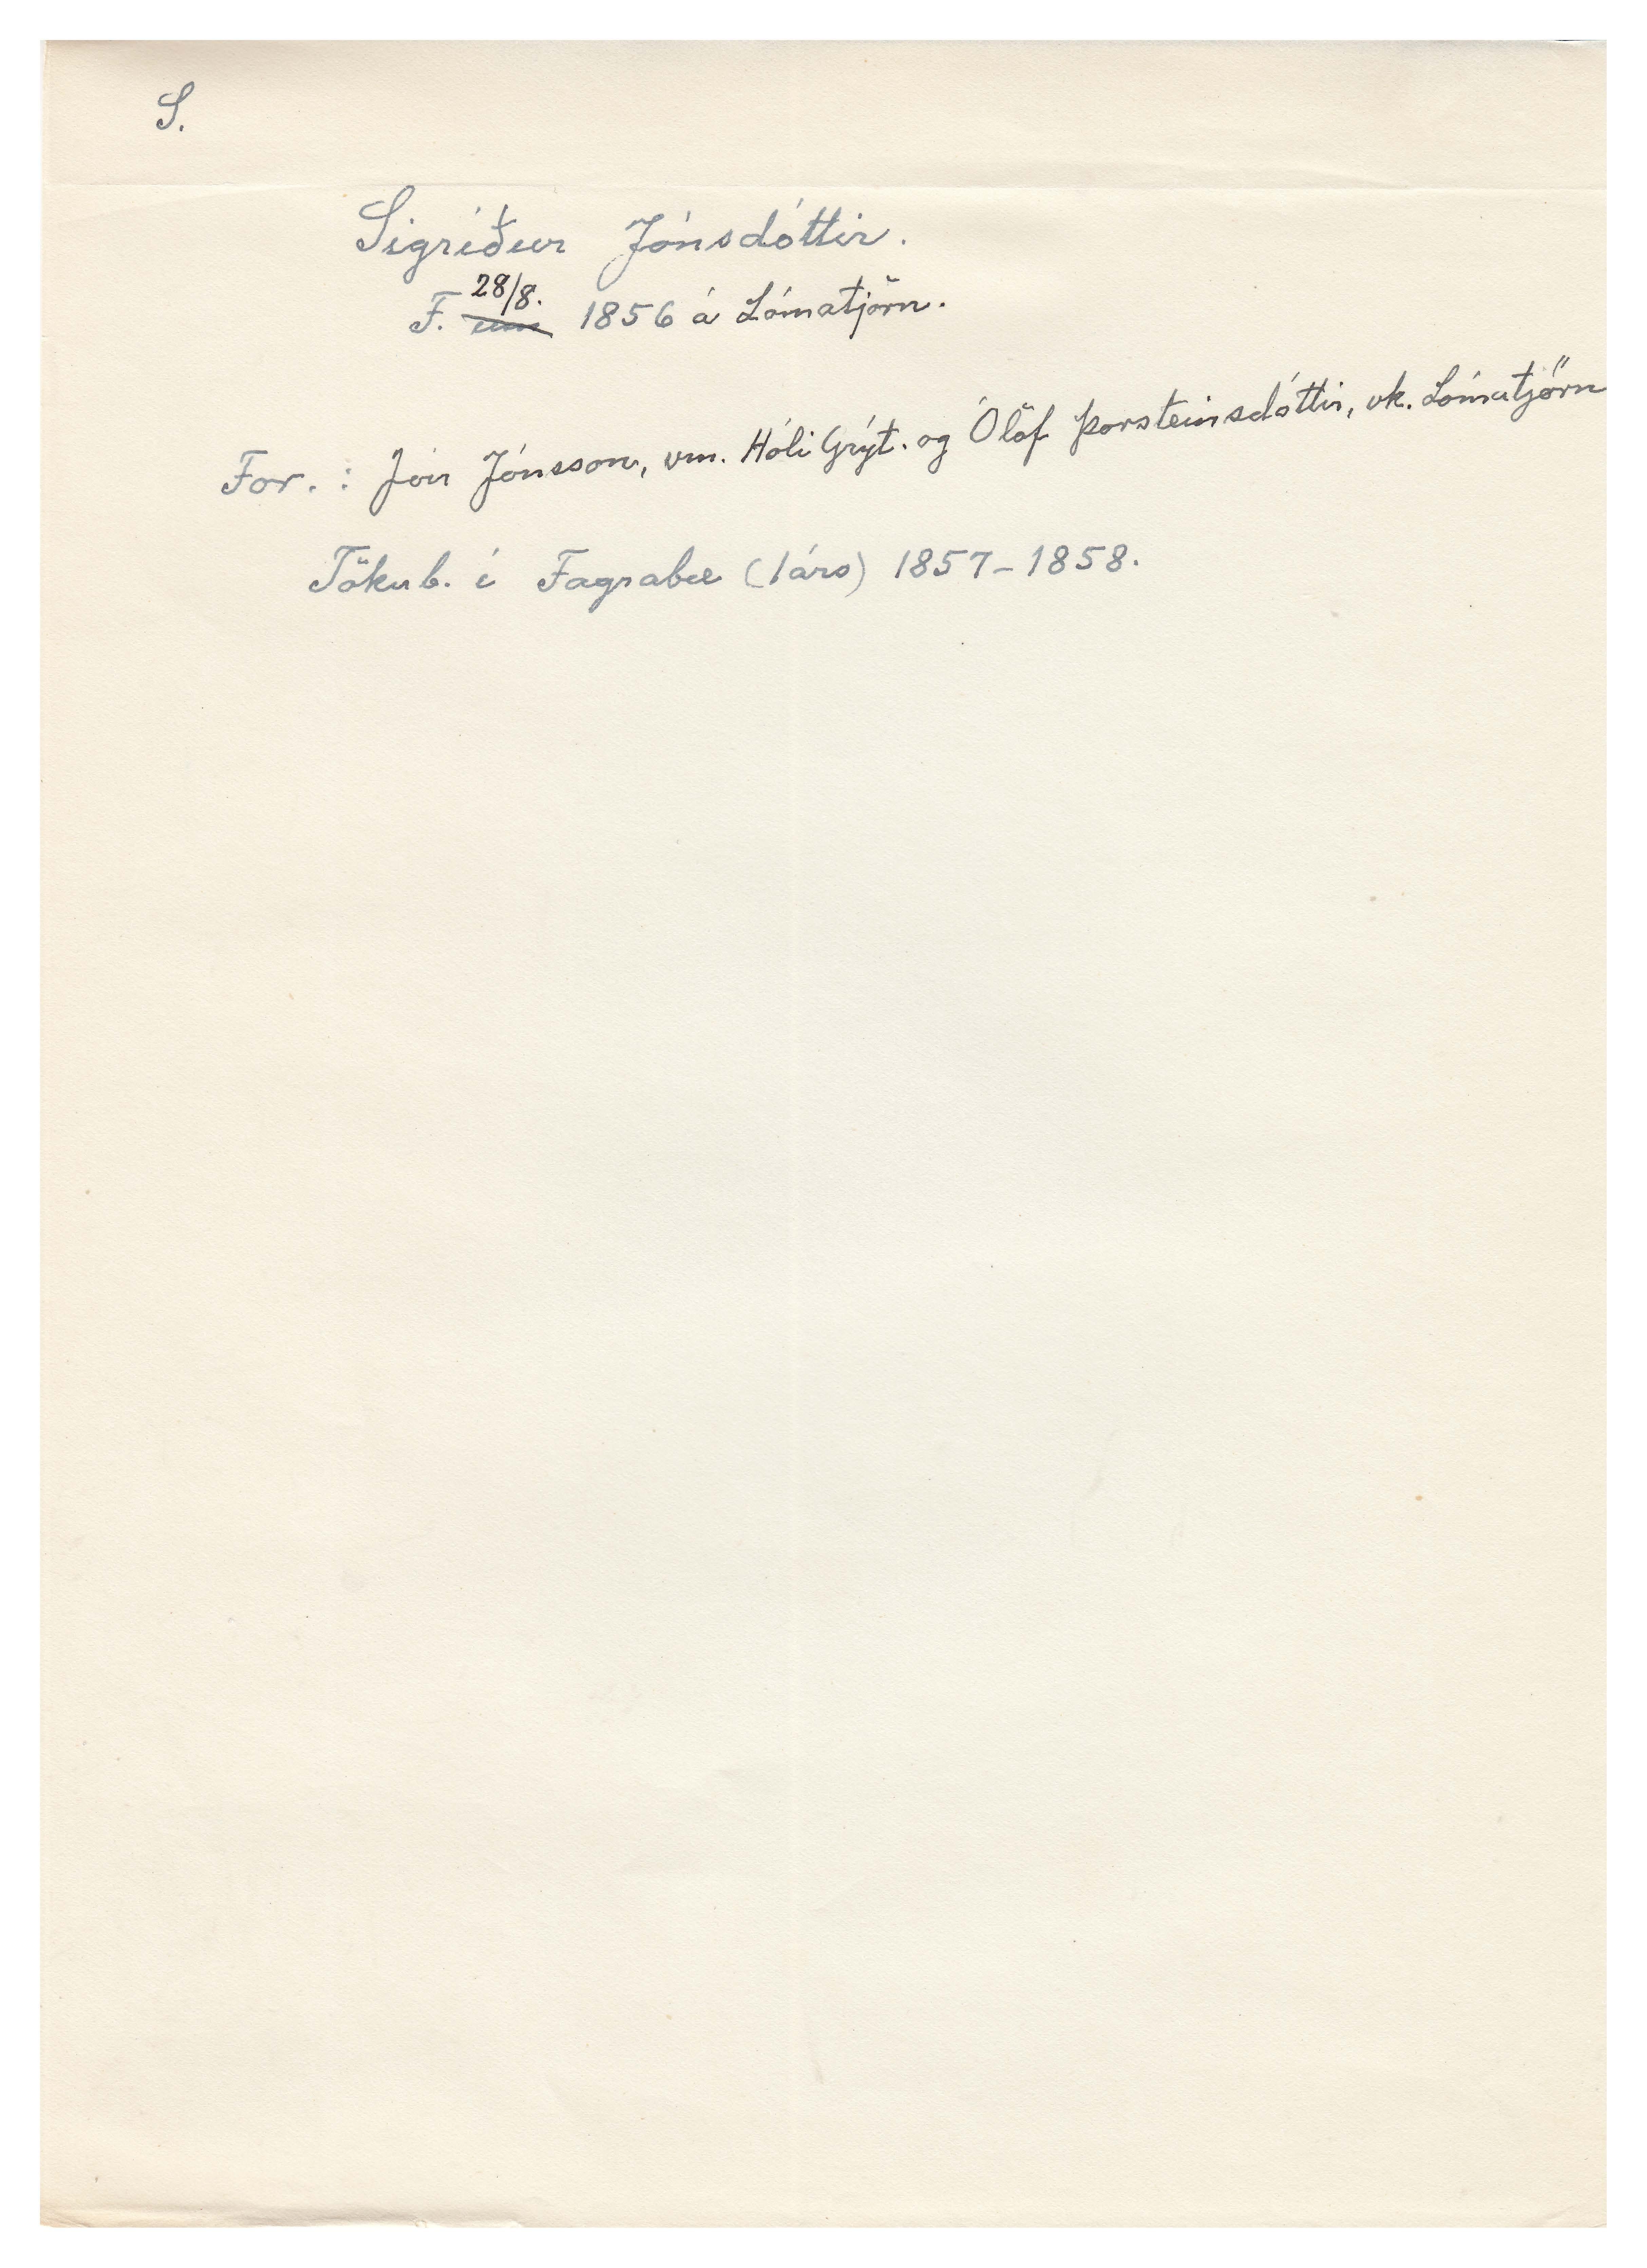 S.
Sigríður Jónsdóttir.
28/8.
F. um 1856 á Lómatjörn.
For. : Jón Jónsson, vm. Hóli Grýt. og Ólöf Þorsteinsdóttir, vk. Lómatjörn
Tökub. í Fagrabæ (1árs) 1857-1858.